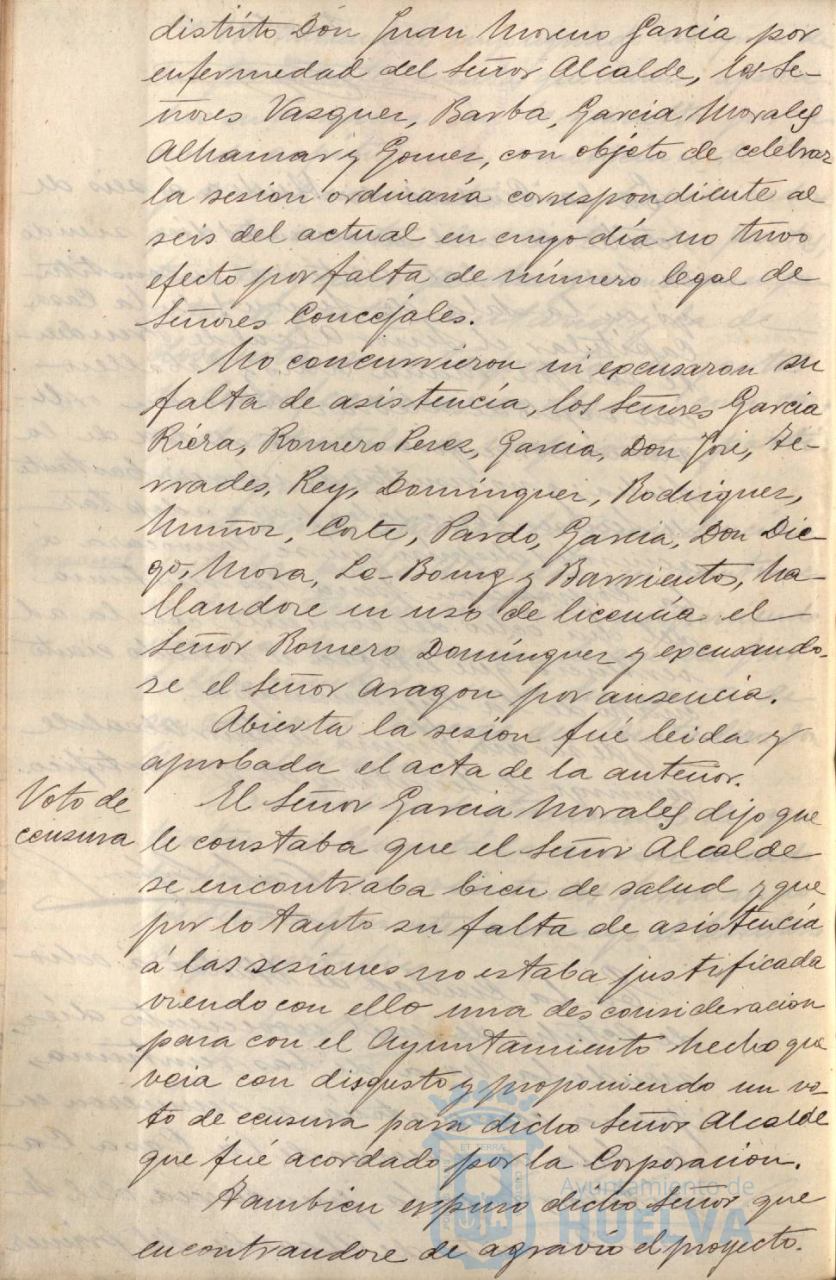 distrito Don Juan Moreno Garcia por
enfermedad del Señor Alcalde, los Se-
ñores Vasquez, Barba, Garcia Morales
Alhamar y Gomez, con objeto de celebrar
la sesion ordinaria correspondiente al
seis del actual en cuyo día no tuvo
efecto por falta de número legal de
Señores Concejales.
No concurrieron ni excusaron su
falta de asistencia, los Señores Garcia
Riéra, Romero Perez, Garcia, Don José, Ze-
rrades, Rey, Domínguez, Rodriguez,
Muñoz, Corte, Pardo, Garcia, Don Die-
go, Mora, Le-Bourg y Barrientos, ha-
llandose en uso de licencia el
Señor Romero Domínguez y excusando-
se el Señor Aragon por ausencia.
Abierta la sesion fué leida y
aprobada el acta de la anterior.
Voto de censura
El Señor Garcia Morales dijo que
le constaba que el Señor Alcalde
se encontraba bien de salud y que
por lo tanto su falta de asistencia
á las sesiones no estaba justificada
viendo con ello una desconsideracion
para con el Ayuntamiento hecho que
veia con disgusto y proponiendo un vo-
to de censura para dicho Señor Alcalde
que fué acordado por la Corporacion.
Tambien expuso dicho Señor que
encontrandose de agravio el proyecto.
Ayuntamiento de
HUELVA